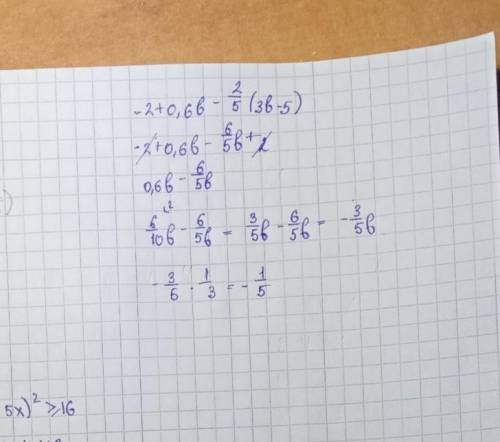 -2+0,6b - 2/5 (3b-5)
-2+0,6b - 6/5b + 2
0,6b - 6/5b
6/10b - 6/5b = 3/5b - 6/5b = -3/5b
-3/5 · 1/3 = -1/5
5x)² ≥ 16